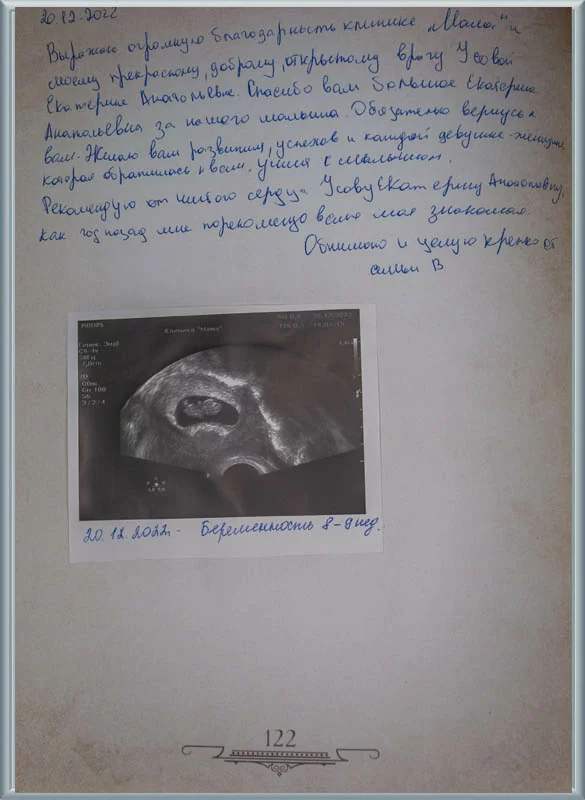 20.12.2022
Выражаю огромную благодарность клинике "Мама" и
моему прекрасному, доброму, открытому врачу Усовой
Екатерине Анатольевне. Спасибо вам большое Екатерина
Анатольевна за нашего малыша. Обязательно вернусь к
вам. Желаю вам развития, успехов и каждой девушке-женщине
которая обратилась к вам, уйти с малышом.
Рекомендую от чистого сердца Усову Екатерину Анатольевну,
как год назад мне порекомендовала моя знакомая.
Обнимаю и целую крепко от
семьи В
PHILIPS
Клиника "Мама"
20/12/2022
Гинек. Энд
C9-4v
7,0cm
2D
Общ
Gn 100
56
3/2/4
20.12.2022г- Беременность 8-9 нед.
122